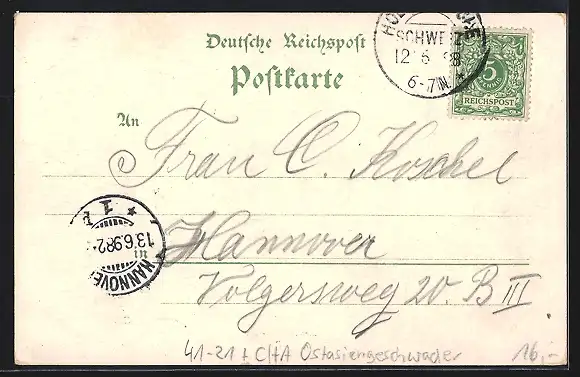 Deutsche Reichspost
Postkarte
SCHWEIZ
12 6 98
6-7N.
5
REICHSPOST
An
Frau C. Koschel
Hannover
in
Volgersweg 20. B III
1
13.6.98
HANNOVER
41-21 + C/+A Ostasiengeschwader
16,-